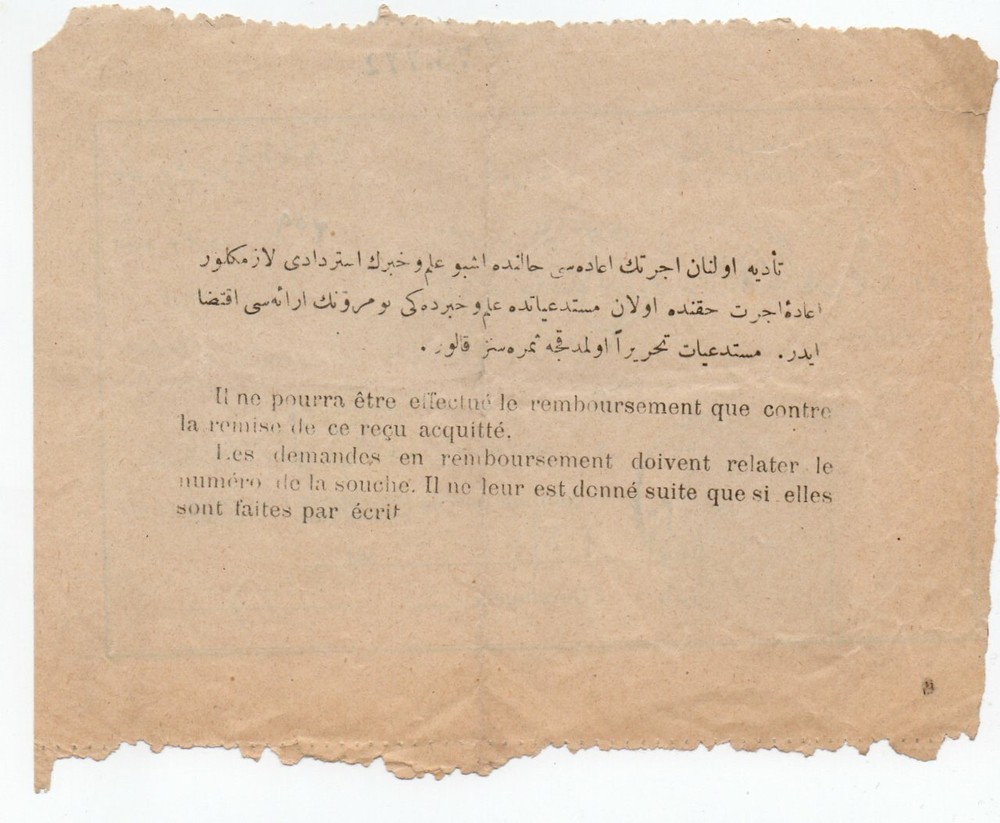 تأديه اولنان اجرتك اعاده‌سى حالنده اشبو علم و خبرك استردادى لازمكلور
اعادۀ اجرت حقنده اولان مستدعياتده علم و خبرده‌كى نومرونك ارائه‌سى اقتضا
ايدر. مستدعيات تحريراً اولمدقجه ثمره‌سز قالور.
Il ne pourra être effectué le remboursement que contre
la remise de ce reçu acquitté.
Les demandes en remboursement doivent relater le
numéro de la souche. Il ne leur est donné suite que si elles
sont faites par écrit